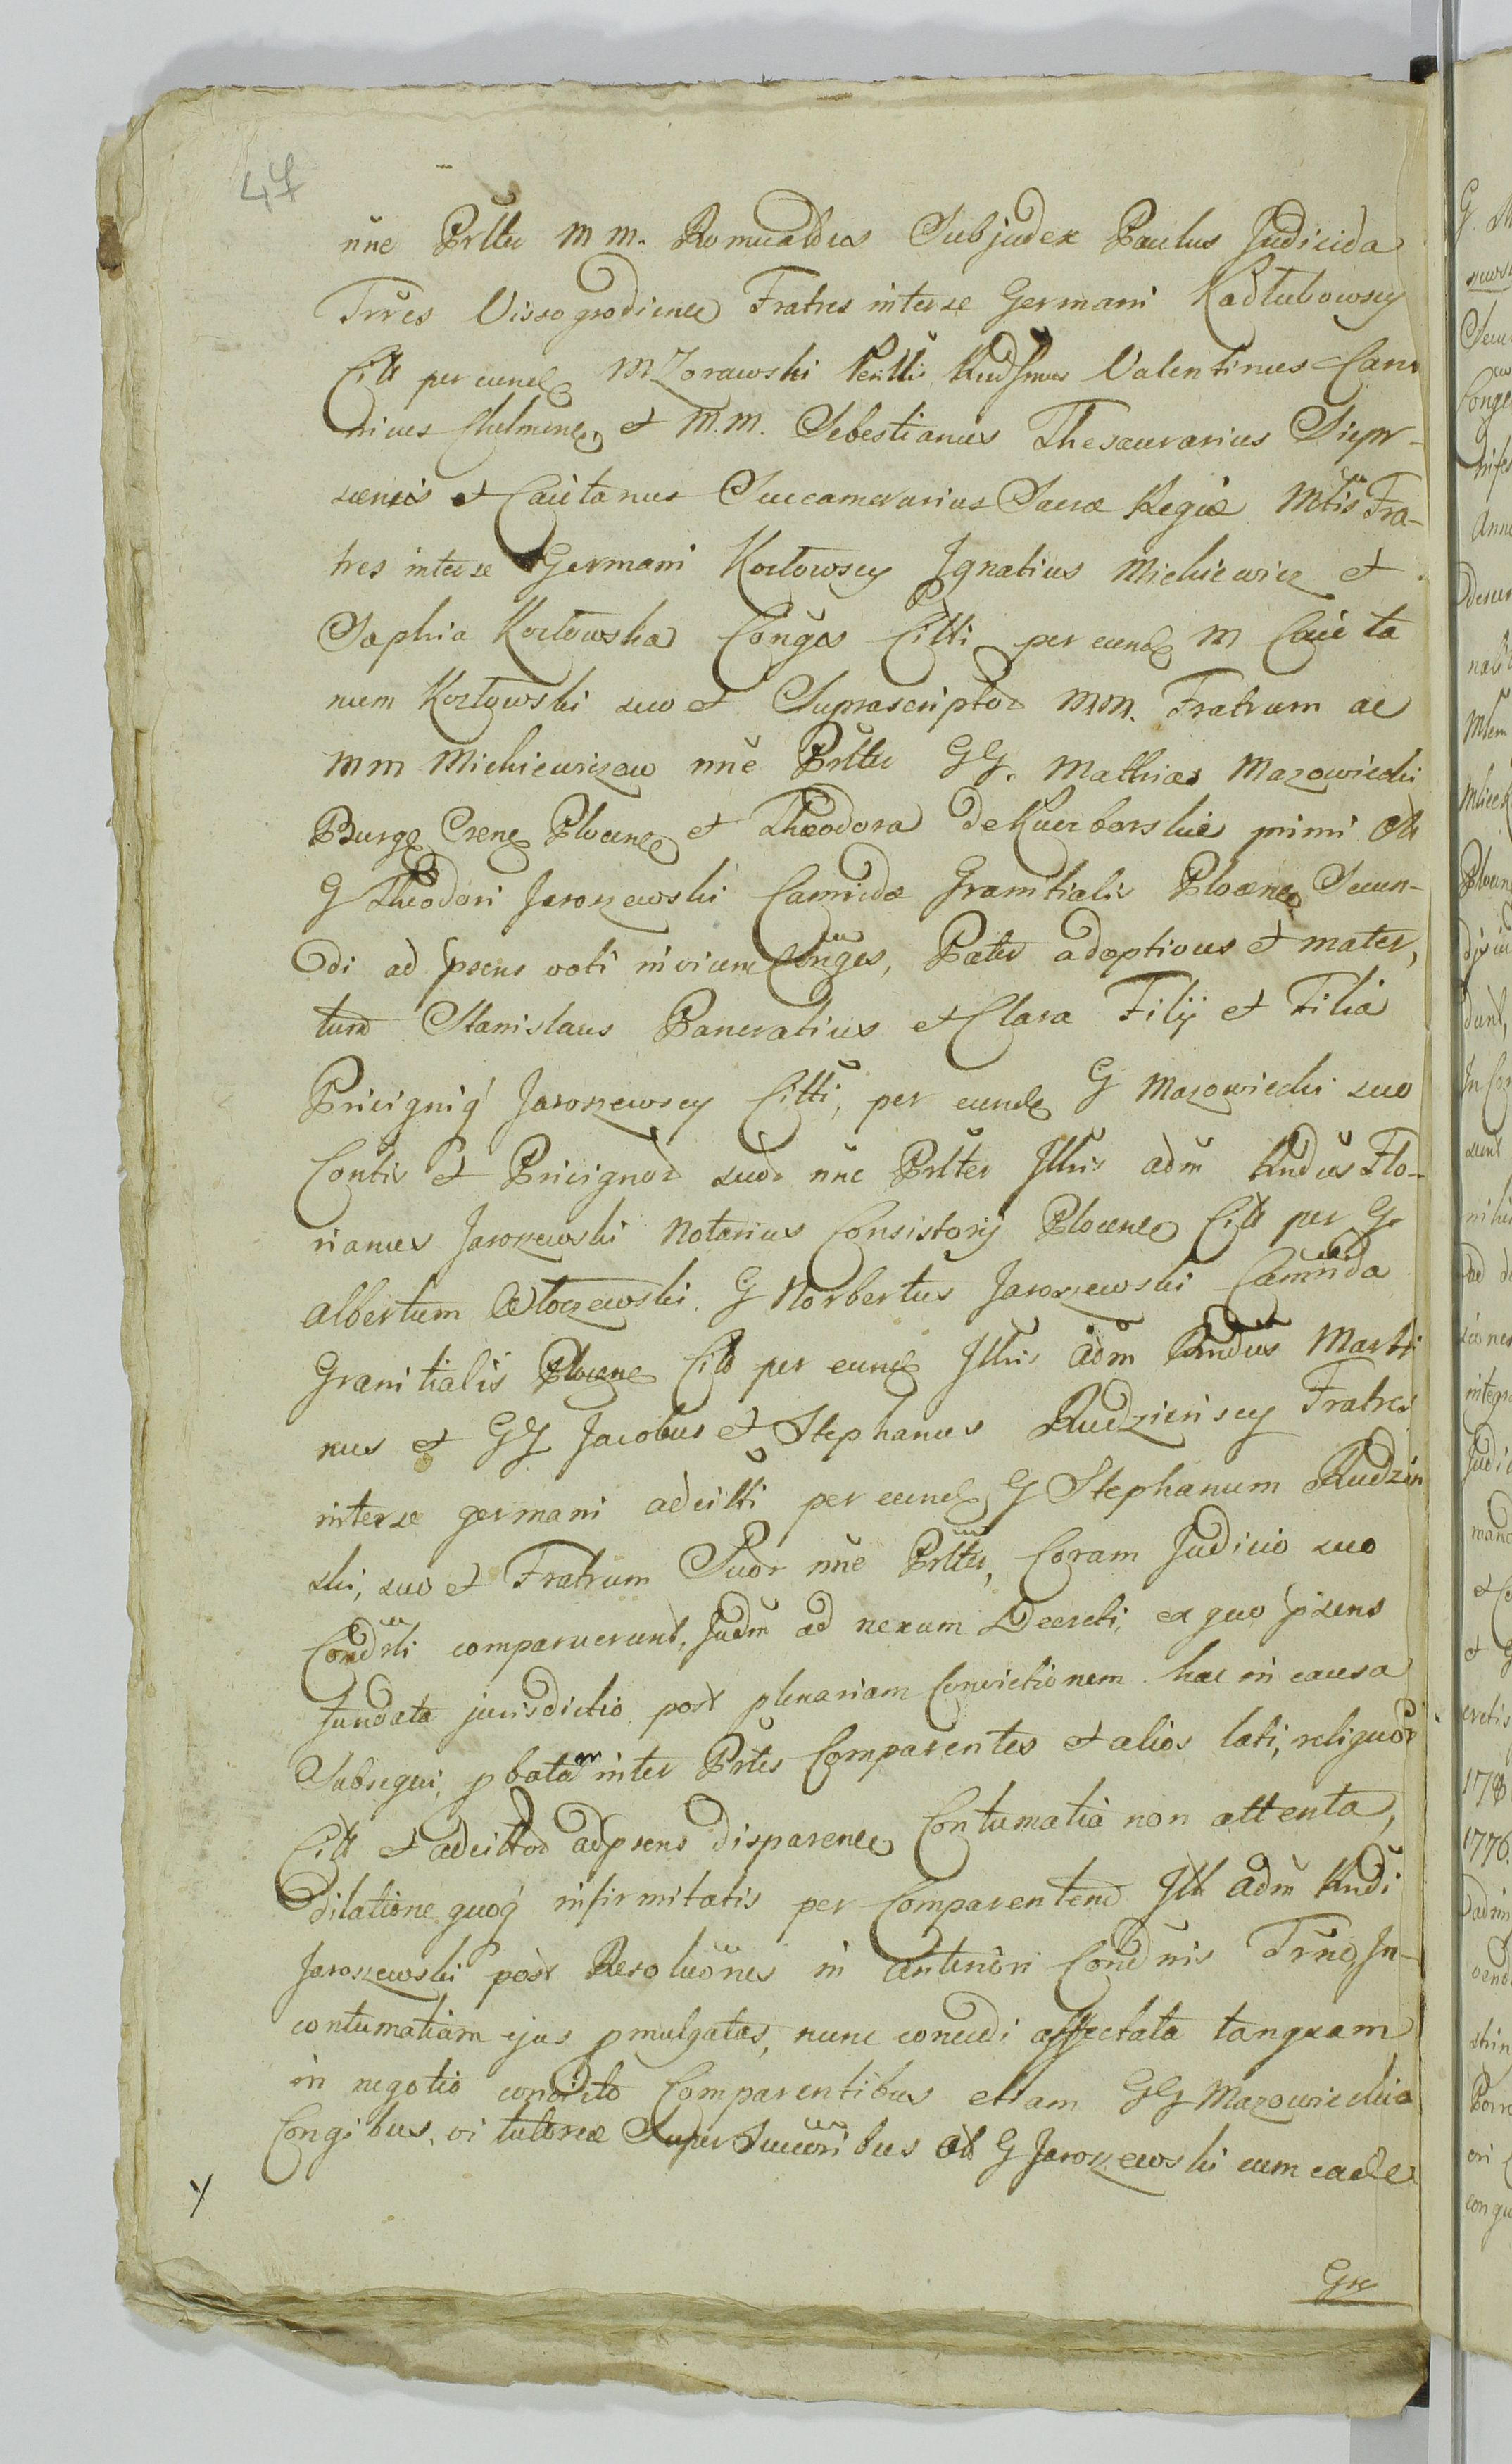 47
nūe Prltu M M. Romualdus Subjudex Paulus Judicida
Trres Vissogrodiense Fratres inter se Germani Kadłubowscy
Citt per eund M Zorawski Perillis Rndsmus Valentinus Cano
nicus Chelmens, et M. M. Sebestianus Thesaurarius Sierp-
scensis et Caietanus Succamerarius Sacræ Regiæ Mtis Fra-
tres inter se Germani Kozłowscy Ignatius Mickiewicz et
Sophia Kozłowska Conges Citti per eund M Caieta
num Kozłowski suo et Suprascriptor MM. Fratrum ac
MM Mickiewiczow nnē Prltu GG. Mathias Mazowiecki
Burg Cren Plocen et Theodora de Kuczborskie primi olt
G Theodori Jaroszewski Camrida Granitialis Plocen Secun-
di ad psens voti invicem Conges, Pater adoptivus et mater,
tum Stanislaus Pancratius et Clara Filij et Filia
Privigniq Jaroszewscy Citti, per eund G Mazowiecki suo
Contis et Privignor suor nnc Prlter Jllris adm Rndus Flo-
rianus Jaroszewski Notarius Consistorij Plocen Citt per G
Albertum Włoczewski. G Norbertus Jaroszewski Camrida
Granitialis Plocen Citt per eund Jllris adm Rndus Marti
nus et GG Jacobus et Stephanus Rudzieńscy Fratres
inter se germani adcitti per eund G Stephanum Rudzin
ski, suo et Fratrum Suor nnc Prltu, Coram Judicio suo
Condsti comparuerunt, Judm ad nexum Decreti, ex quo psens
fundata jurisdictio, post plenariam Convictionem hac in causa
Subsequi, pbatam inter Prtes Comparentes et alios lati, reliquor
Citt et adcittor adpsens disparen Contumatia non attenta,
dilatione quoq infirmitatis per Comparentem Jllt adm Rndi
Jaroszewski post Resoluones in anteriori Condnis Trno, In-
contumatiam ejus pmulgatas, nunc concedi affectata tanquam
in negotio convicto Comparentibus etiam GG Mazowieckie
Congibus, vi tutoreæ Super Succoribus olt G Jaroszewski cum eade
Gre